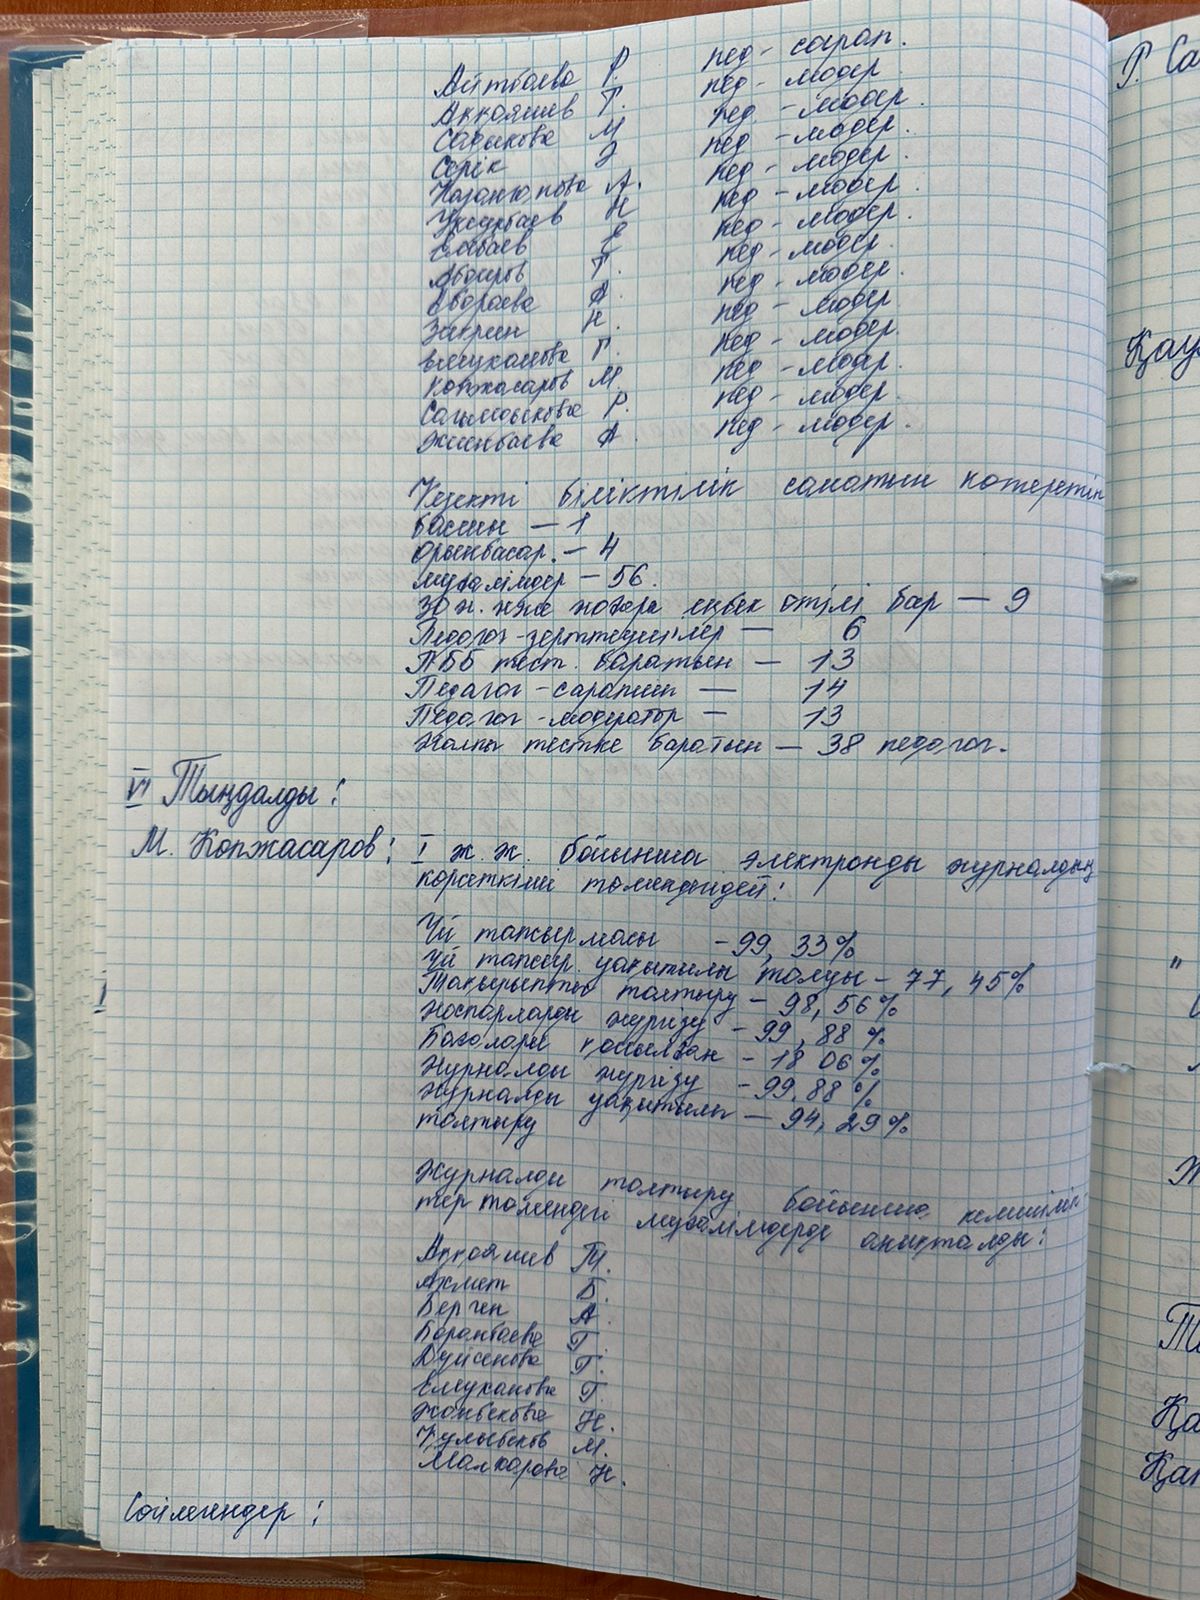 Айтбаева Р. пед - сарап.
Аккояшев Т. пед - модер
Садыкова М пед. - модер.
Серік Э пед - модер.
А. пед - модер.
Н пед - модер.
Елебаев Е пед - модер.
Абдиров Т. пед - модер.
Абдраева А. пед - модер.
Н. пед - модер.
Емуканова Г. пед - модер.
Копжасаров М. пед - модер.
Сагымбекова Р. пед - модер.
Жиенбаева А. пед - модер.
Кезекті біліктілік санатын көтеретін
басшы — 1
орынбасар. — 4
мұғалімдер — 56.
30 ж. және жоғары еңбек өтілі бар — 9
Педагог-зерттеушілер — 6
ПББ тест. баратын — 13
Педагог-сарапшы — 14
Педагог-модератор — 13
Жалпы тестке баратын — 38 педагог.
VI Тыңдалды:
М. Копжасаров: I ж.ж. бойынша электронды журналдың
көрсеткіші төмендегідей:
Үй тапсырмасы - 99, 33%
Үй тапсыр. уақытылы толуы - 77, 45%
Тақырыпты толтыру - 98, 56%
Жоспарларды жүргізу - 99, 88%
Бағалары қойылған - 18 06%
Журналды жүргізу - 99.88%
Журналды уақытылы
толтыру — 94, 29%
Журналды толтыру бойынша кемшілік-
тер төмендегі мұғалімдерде анықталды:
Аккояшев Т.
Ахмет Б.
Берген А.
Баранбаева Г.
Дуйсенова Г.
Емуканова Г.
Жанбекова Н.
Кулыбеков М.
Макарова Н.
Сөйлегендер:
Р. Са
Қау
"
Қа
Қа